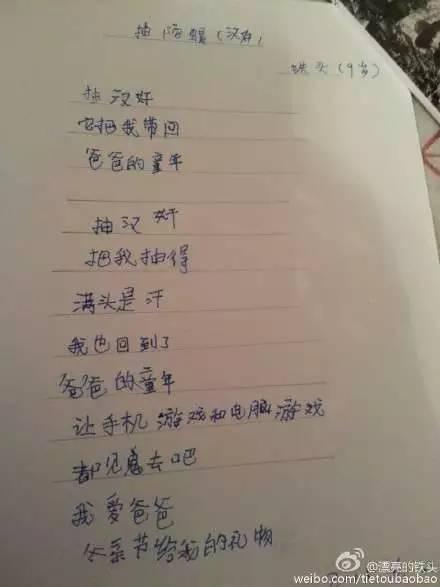 抽陀螺(汉奸)
铁头(9岁)
抽汉奸
它把我带回
爸爸的童年
抽汉奸
把我抽得
满头是汗
我也回到了
爸爸的童年
让手机游戏和电脑游戏
都见鬼去吧
我爱爸爸
父亲节给我的礼物
@漂亮的铁头
weibo.com/tietoubaobao